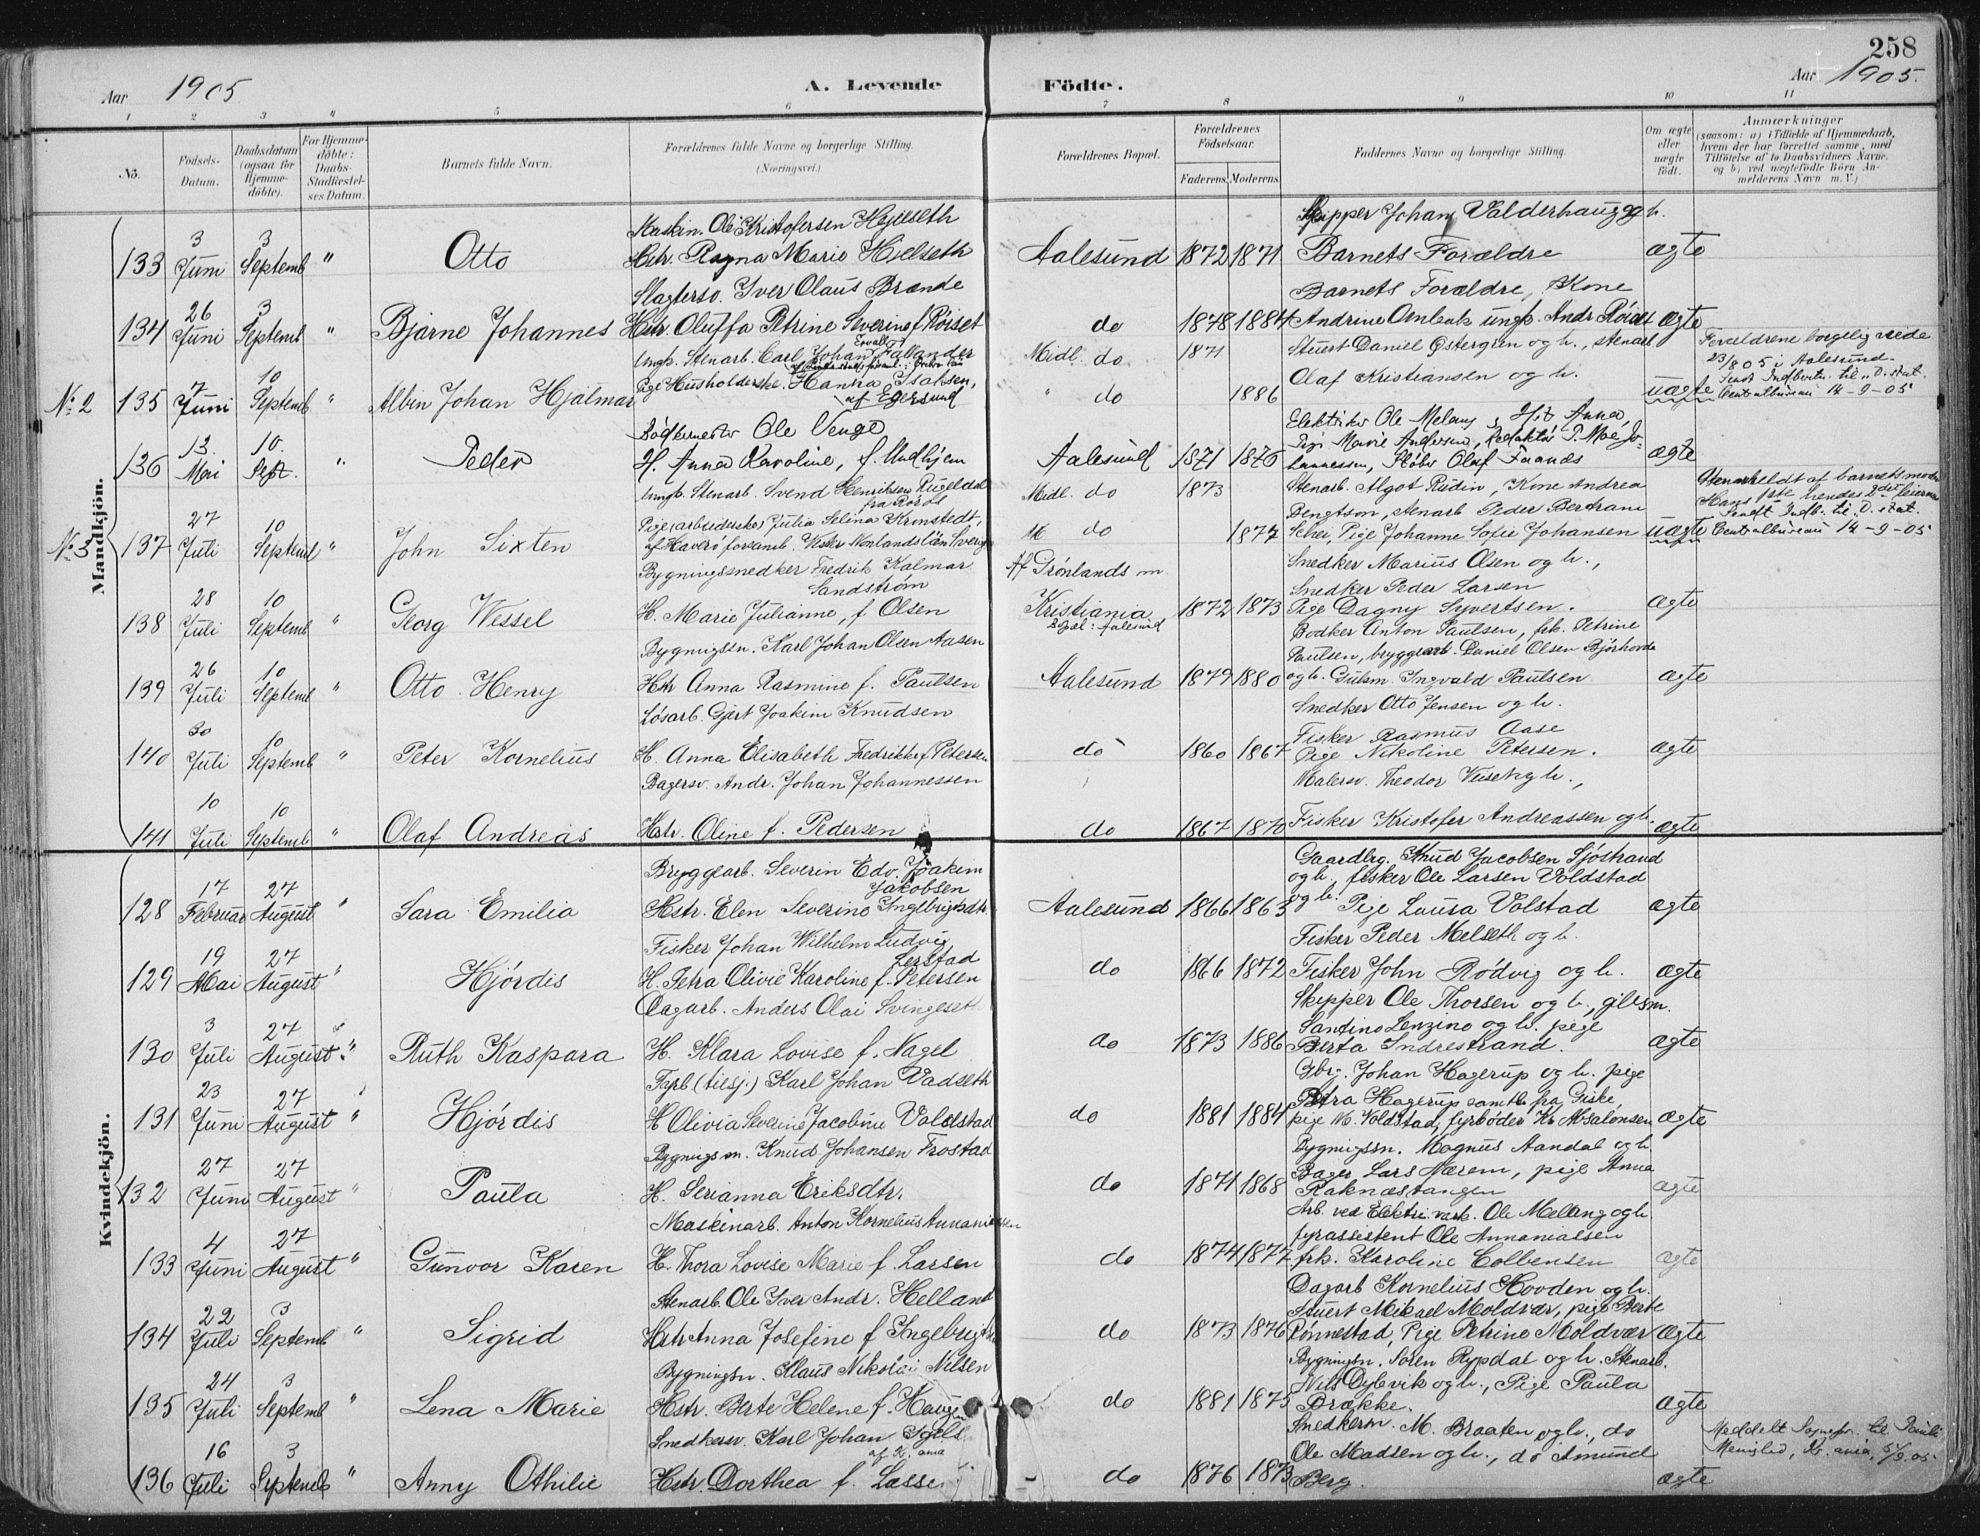 258
Aar 1905.
A. Levende
Födte.
Aar 1905.
1 2 3 4 5 6 7 8 9 10 11
No.
Födsels-Datum.
Daabsdatum (ogsaa for Hjemmedöbte).
For Hjemmedöbte: Daabs-Stadfæstelses Datum.
Barnets fulde Navn.
Forældrenes fulde Navne og borgerlige Stilling. (Næringsvei.)
Forældrenes Bopæl.
Forældrenes Födselsaar.
Faderens. Moderens.
Faddernes Navne og borgerlige Stilling.
Om ægte eller uægte födt.
Anmærkninger
(saasom: a) i Tilfælde af Hjemmedaab, hvem der har forrettet samme, med Tilföielse af to Daabsvidners Navne, og b) ved uægtefödte Börn Anmelderens Navn m. V.)
Mandkjön.
133 3 Juni 3 Septemb " Otto
Maskin. Ole Kristofersen Hjelseth
Hstr. Ragna Marie Hjelseth
Aalesund 1872 1871
Skipper Johan Valderhaug og h.
Barnets Forældre
ægte
134 26 Juni 3 Septemb " Bjarne Johannes
Slagtersv. Iver Olaus Brande
Hstr. Oluffa Petrine Severine f. Röiset
do 1878 1884
Barnets Forældre, Kone
Andrine ungk. Andr Röiset
ægte
No 2 135 7 Juni 10 Septemb " Albin Johan Hjalmar
Ungk. Stenarb. Carl Johan
Pige Husholderske Hanna Isaksen,
af Egersund
Midl. do 1871
" do 1886
Stuert Daniel Östergren og h., stenarb
Olaf Kristiansen og h.
uægte
Forældrene borgerlig viede
23/8 05 i Aalesund.
Sendt Indberetn. til D. stat.
Centralbureau 14-9-05
136 13. Mai 10. Sept. " Peder
Bödkermester Ole Venge
H. Anna Karoline, f. Undhjem
Aalesund 1871 1876
Elektriker Ole Melang, Hst Anna,
Pige Marie Andersen, Redaktör P. Moe Jo-
hannessen, Olaf
ægte
No 3 137 27 Juli 10 Septemb " John Sixten
Ungk. Stenarb. Svend Henriksen Rugeldal
fra Röros
Pige (arbeiderske) Julia Selina Kronstedt,
af Haverö Vester Norrlands län Sverige
Midl. do 1873
M do 1877
Stenarb. Algot Rudin, Kone Andrea
Bengtson, stenarb Peder Bertram
Schei, Pige Johanne Sofie Johansen
uægte
anmeldt af barnets moder
Hans 1ste hendes 2det leierm.
Sendt Indb. til D. stat.
Centralbureau 14-9-05
138 28 Juli 10 Septemb " Georg Wessel
Bygningssnedker Fredrik Kalmar
Sandström
H. Marie Julianne, f Olsen
Af Grönlands m.
Kristiania
Bopæl: Aalesund
1872 1873
Snedker Marius Olsen og h.,
Snedker Peder Larsen
Pige Dagny Syvertsen.
ægte
139 26 Juli 10 Septemb " Otto Henry
Bygnigssn. Karl Johan Olsen Aasen
Hstr Anna Rasmine f. Paulsen
Aalesund 1879 1880
Bödker Anton Paulsen, frk. Petrine
Paulsen, bryggearb. Daniel Olsen Björhovde
og h. Gulsm. Ingvald Paulsen
ægte
140 30 Juli 10 Septemb " Peter Kornelius
Lösarb. Gjert Joakim Knudsen
H. Anna Elisabeth Fredrikke f Petersen
do 1860 1867
Snedker Otto Jensen og h.
Fisker Rasmus Aase
Pige Nikoline Petersen.
ægte
141 10 Juli 10 Septemb " Olaf Andreas
Bagersv. Andr. Johan Johannessen
Hstr. Oline f. Pedersen
do 1867 1870
Malersv. Theodor og h.,
Fisker Kristofer Andreassen og h.
ægte
Kvindekjön.
128 17 Februar 27 August " Sara Emilia
Bryggearb. Severin Edv. Joakim
Jakobsen
Hstr. Elen Severine Ingebrigtsdtr
Aalesund 1866 1863
Gaardbrg. Knud Jacobsen Sjöstrand
og h., fisker Ole Larsen Voldstad
og h. Pige Lausa Volstad
ægte
129 19 Mai 27 August " Hjördis
Fisker Johan Wilhelm Ludvig
Lerstad
H. Petra Olivie Karoline f. Petersen
do 1866 1872
Fisker Peder Melseth og h.
Fisker John Rödvig og h.
ægte
130 3 Juli 27 August " Ruth Kaspara
Dagarb. Anders Olai Svingeset
H. Klara Lovise f. Nagel
do 1873 1886
Skipper Ole Thorsen og h., gibsm.
Santino Lenzino og h. pige
Berta Indrestrand.
ægte
131 23 Juni 27 August " Hjördis
Farb (tilsj.) Karl Johan Vadseth
H Olivia Severine Jacobine Valdstad
do 1881 1884
Gbrg. Johan Hagerup og h. pige
Petra Hagerup samtl. fra Giske,
pige M. Voldstad, fyrböder Kr. Misalonsen
ægte
132 27 Juni 27 August " Paula
Bygnigs m. Knud Johansen Frostad
H. Serianna Eriksdtr.
do 1871 1868
Bygnigssn. Magnus Aandal og h.
Bager Lars Nærem, pige Anna
Raknæstangen
ægte
133 4 Juni 27 August " Gunvor Karen
Maskinarb. Anton Kornelius Annaniassen
H. Thora Lovise Marie f. Larsen
do 1874 1877
Arb. ved Elektri. værk. Ole Melling og h
fyrassistent Ole Annaniassen
frk. Karoline Colbensen
ægte
134 22 Juli 3 Septemb " Sigrid
Stenarb. Ole Iver Andr. Helland
Hstr Anna Josefine f Ingebrigtsen
do 1873 1876
Dagarb Kornelius Hovden og h.
Stuert Mikael Moldvær, pige Berte
Rönnestad, Pige Petrine Moldvær
ægte
135 24 Juli 3 Septemb " Lena Marie
Bygningsn. Klaus Nikolai Nilsen
Hstr. Berte Helene f. Haugen
do 1881 1875
Bygningsn. Sören Rypdal og h. Stenarb.
Nils Dybvik og h., Pige Paula
Brække.
ægte
136 16 Juli 3 Septemb " Anny Othilie
Snedkersv. Karl Johan
af Kr.ania
Hstr. Dorthea f. Lasse
do 1876 1873
Snedkerm. M. Braaten og h., do
Ole Madsen og h., do Amund
Berg.
ægte
Meddelt Sognepr. til Pauli
Menighed, Kr.ania, 5/9.05